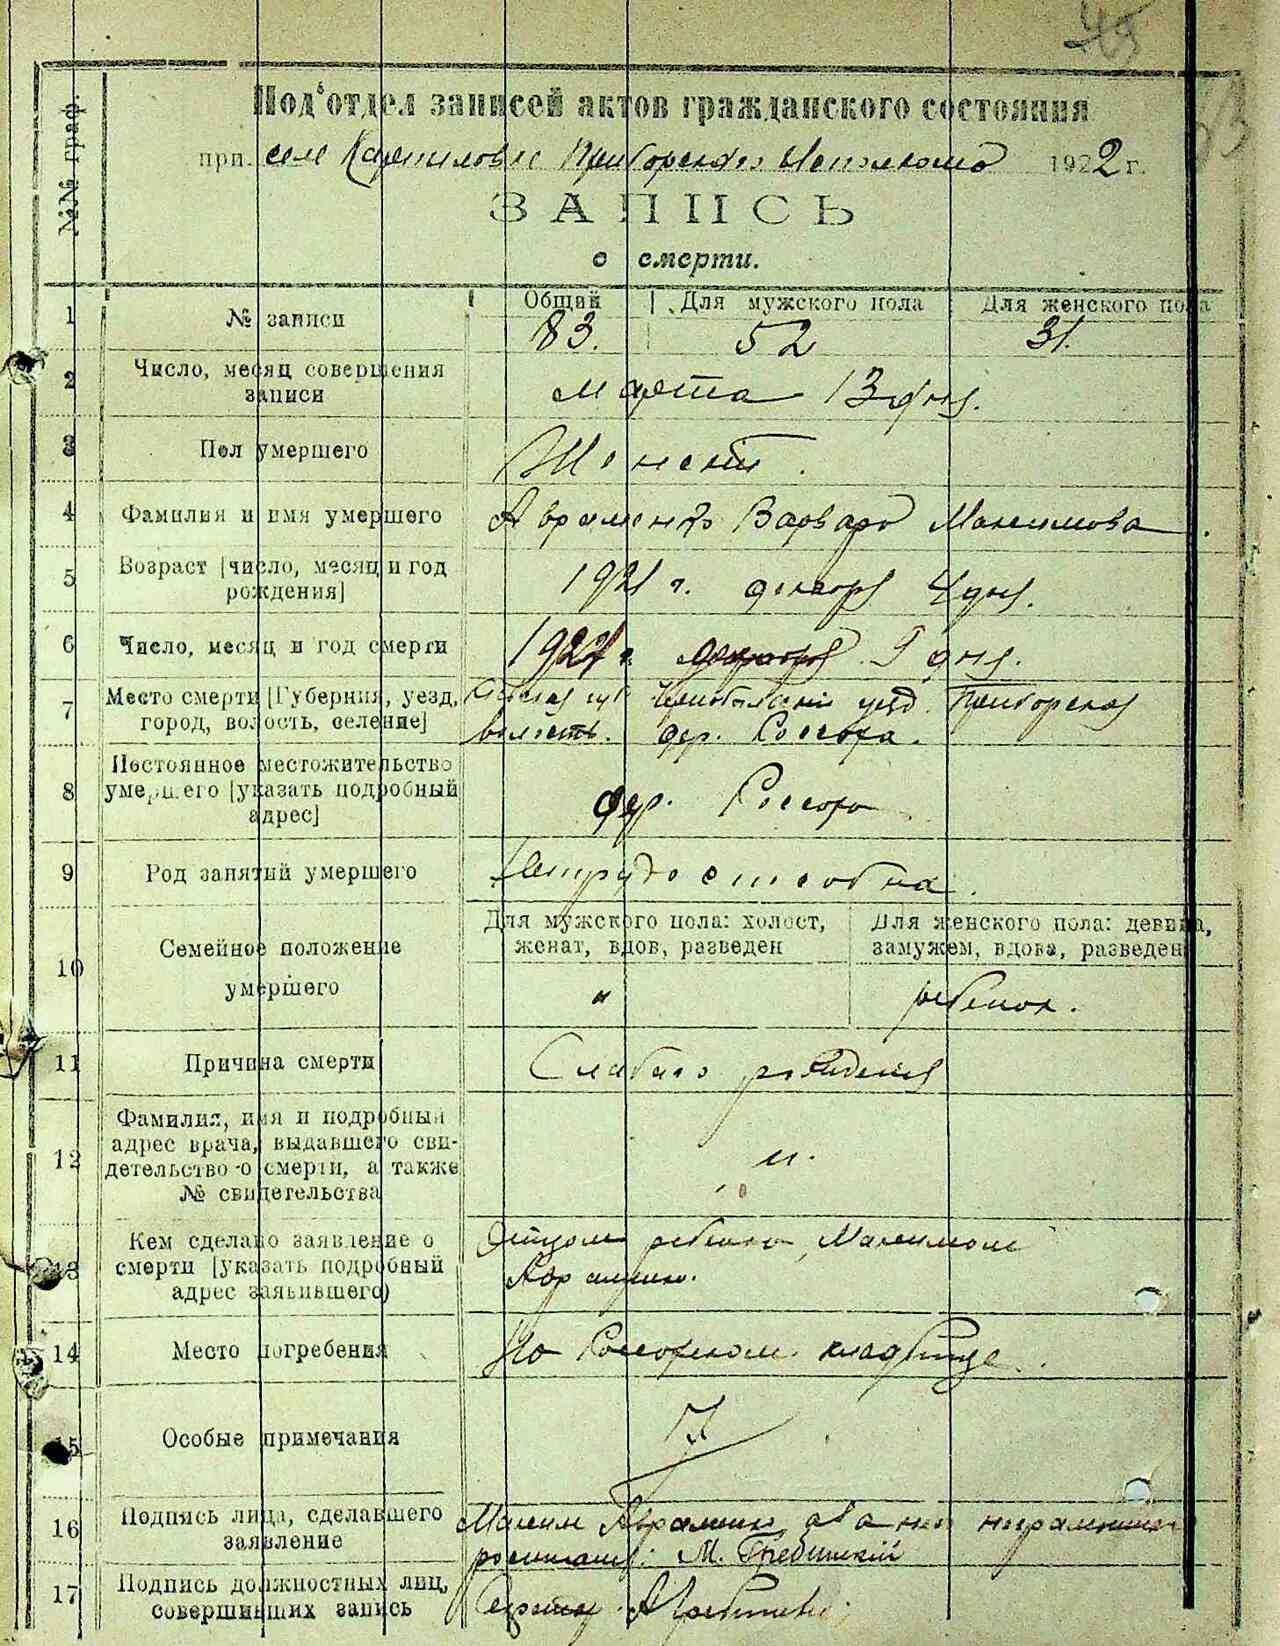 45
Под'отдел записей актов гражданского состояния
при селе Карпиловке Приборского Исполкома 1922 г.
ЗАПИСЬ
о смерти.
№№ граф.
Общий Для мужского пола Для женского пола
1 № записи 83. 52 31.
2 Число, месяц совершения
записи
марта 13 дня.
3 Пол умершего
Женский.
4 Фамилия и имя умершего Авраменко Варвара Максимова.
5 Возраст [число, месяц и год
рождения]
1921 г. декабря 4 дня.
6 Число, месяц и год смерти 1922 г. дня.
7 Место смерти [Губерния, уезд,
город, волость, селение]
губ. Чернобыльский уезд. Приборская
волость. дер. Россоха.
8 Постоянное местожительство
умершего [указать подробный
адрес]
дер. Россоха
9 Род занятий умершего Нетрудоспособна.
10 Семейное положение
умершего
Для мужского пола: холост,
женат, вдов, разведен
Для женского пола: девица,
замужем, вдова, разведен
"
ребенок.
11 Причина смерти рождения
12 Фамилия, имя и подробный
адрес врача, выдавшего сви-
детельство о смерти, а также
№ свидетельства
13 Кем сделано заявление о
смерти [указать подробный
адрес заявившего)
Отцом ребенка, Максимом
Авраменко.
14 Место погребения На Россохском кладбище.
15 Особые примечания
16 Подпись лица, сделавшего
заявление
Максим Авраменко, а за него неграмотного
росписался: М.
17 Подпись должностных лиц,
совершивших запись